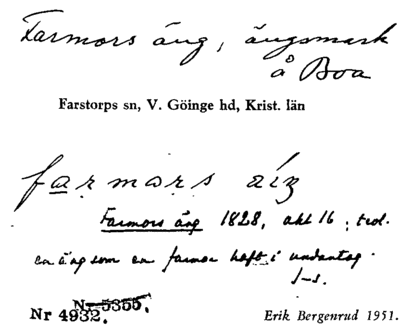 Farmors äng, ängsmark
å Boa
Farstorps sn, V. Göinge hd, Krist. län
farmars äiŋ
Farmors äng 1828, akt 16; trol.
en äng som en farmor haft i undantag.
Nr 5355.
Nr 4932.
Erik Bergenrud 1951.